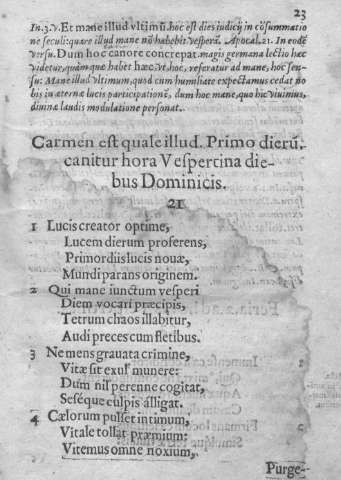 23
In.3.v. Et mane illud vltimũ. hoc est dies iudicij in cõsummatio
ne seculi: quare illud mane nõ habebit vesperã. Apocal. 21. In eodẽ
versu. Dum hoc canore concrepat. magis germana lectio hæc
videtur, quàm quæ habet hæc ve, hoc, referatur ad mane, hoc sen-
su: Mane illud vltimum, quod cum humilitate expectamus cedat no
bis in æternæ lucis participationẽ, dum hoc mane, quo hîc viuimus,
diuinæ laudis modulatione personat.
Carmen est quale illud. Primo dierũ.
canitur hora Vespertina die-
bus Dominicis.
21
1 Lucis creator optime,
Lucem dierum proferens,
Primordiis lucis nouæ,
Mundi parans originem.
2 Qui mane iunctum vesperi
Diem vocari præcipis,
Tetrum chaos illabitur,
Audi preces cum fletibus.
3 Ne mens grauata crimine,
Vitæ sit exul munere:
Dum nil perenne cogitat,
Seséque culpis alligat.
4 Cælorum pulset intimum,
Vitale tollat præmium:
Vitemus omne noxium,
Purge-